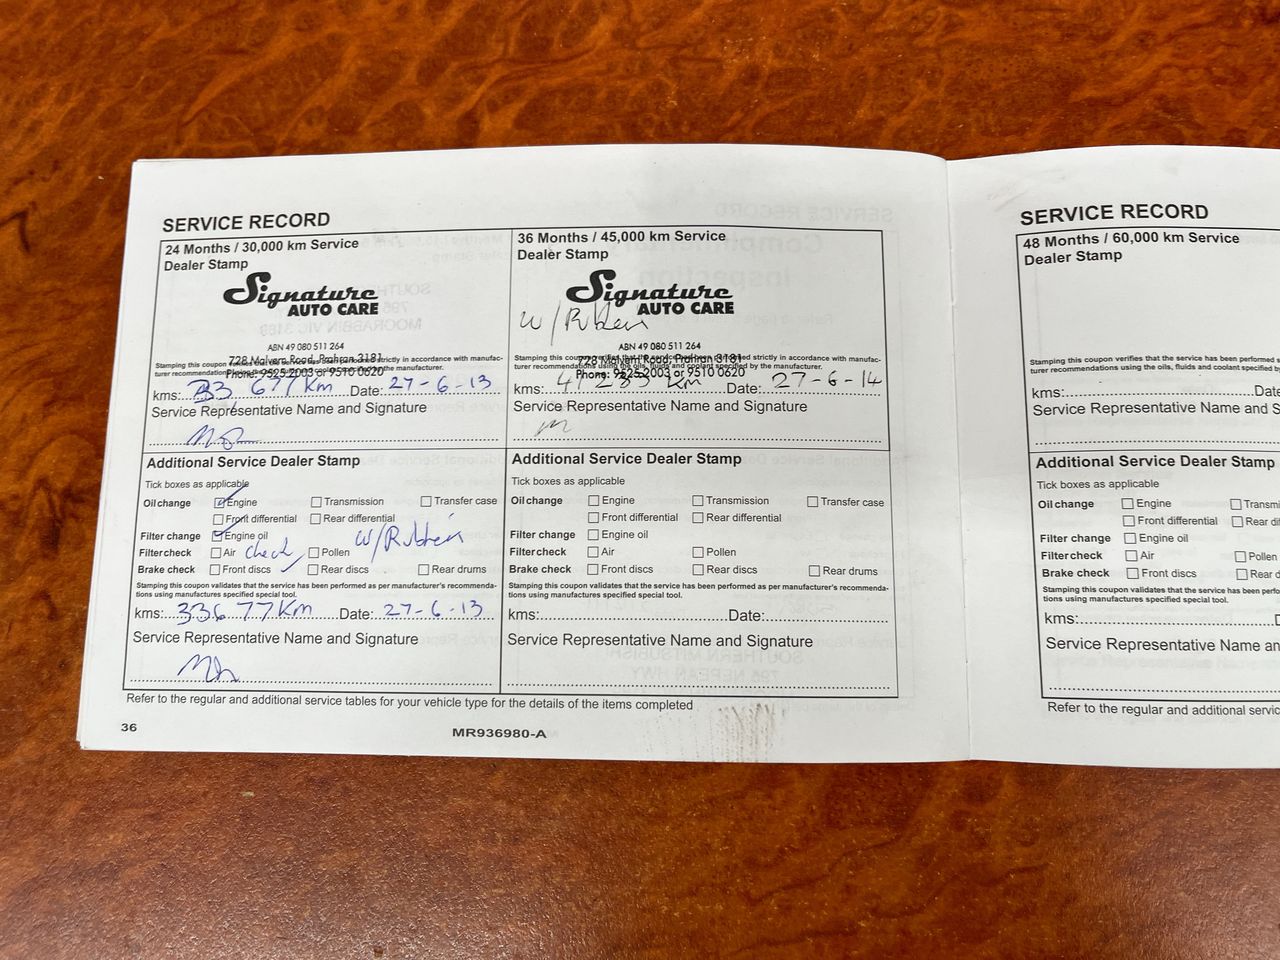 SERVICE RECORD
24 Months / 30,000 km Service
Dealer Stamp
Signature
AUTO CARE
ABN 49 080 511 264
728 Malvern Road, Prahran 3181
Phone: 9525 2003 or 9510 0620
Stamping this coupon verifies that the service has been performed strictly in accordance with manufac-
turer recommendations using the oils, fluids and coolant specified by the manufacturer.
kms: 33 677 km Date: 27-6-13
Service Representative Name and Signature
Additional Service Dealer Stamp
Tick boxes as applicable
Oil change Engine Transmission Transfer case
Front differential Rear differential
Filter change Engine oil w/Ruben
Filter check Air check Pollen
Brake check Front discs Rear discs Rear drums
Stamping this coupon validates that the service has been performed as per manufacturer's recommenda-
tions using manufactures specified special tool.
kms: 33677 Km Date: 27-6-13
Service Representative Name and Signature
36 Months / 45,000 km Service
Dealer Stamp
Signature
AUTO CARE
w/Ruben
ABN 49 080 511 264
728 Malvern Road, Prahran 3181
Phone: 9525 2003 or 9510 0620
Stamping this coupon verifies that the service has been performed strictly in accordance with manufac-
turer recommendations using the oils, fluids and coolant specified by the manufacturer.
kms: km Date: 27-6-14
Service Representative Name and Signature
Additional Service Dealer Stamp
Tick boxes as applicable
Oil change Engine Transmission Transfer case
Front differential Rear differential
Filter change Engine oil
Filter check Air Pollen
Brake check Front discs Rear discs Rear drums
Stamping this coupon validates that the service has been performed as per manufacturer's recommenda-
tions using manufactures specified special tool.
kms: Date:
Service Representative Name and Signature
Refer to the regular and additional service tables for your vehicle type for the details of the items completed
36
MR936980-A
SERVICE RECORD
48 Months / 60,000 km Service
Dealer Stamp
Stamping this coupon verifies that the service has been performed s
turer recommendations using the oils, fluids and coolant specified by
kms: Date
Service Representative Name and S
Additional Service Dealer Stamp
Tick boxes as applicable
Oil change Engine Transmi
Front differential Rear di
Filter change Engine oil
Filter check Air Pollen
Brake check Front discs Rear d
Stamping this coupon validates that the service has been perfo
tions using manufactures specified special tool.
kms: D
Service Representative Name an
Refer to the regular and additional servic